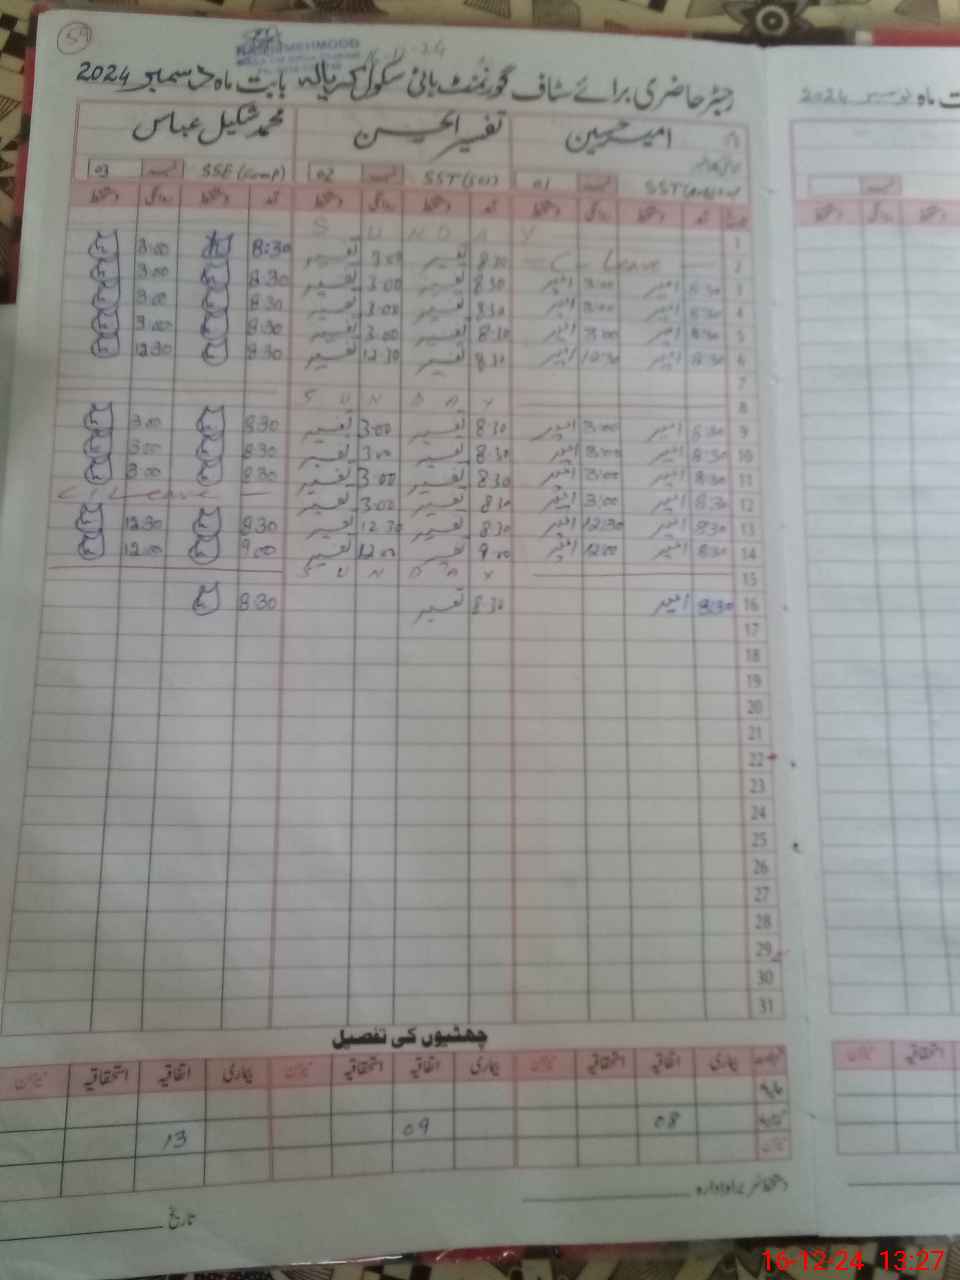 59
رجسٹر حاضری برائے سٹاف گورنمنٹ ہائی سکول کریالہ بابت ماہ دسمبر 2024
امیر حسین تفسیر الحسن محمد شکیل عباس
SST 01 SST 02 SSE (Comp) 03
1 S U N D A Y
2 C-Leave 8.30 تفسیر 3.00 تفسیر 8:30 3:00
3 8:30 امیر 3:00 امیر 8.30 تفسیر 3.00 تفسیر 8.30 3:00
4 8:30 امیر 3:00 امیر 8.30 تفسیر 3.00 تفسیر 8.30 3:00
5 8:30 امیر 3:00 امیر 8.30 تفسیر 3.00 تفسیر 8.30 3:00
6 8:30 امیر 12:30 امیر 8.30 تفسیر 12.30 تفسیر 8.30 12:30
7
8 S U N D A Y
9 8:30 امیر 3:00 امیر 8.30 تفسیر 3.00 تفسیر 8.30 3:00
10 8:30 امیر 3:00 امیر 8.30 تفسیر 3.00 تفسیر 8.30 3:00
11 8:30 امیر 3:00 امیر 8.30 تفسیر 3.00 تفسیر 8.30 3:00
12 8:30 امیر 3:00 امیر 8.30 تفسیر 3.00 تفسیر C/Leave
13 8:30 امیر 12:30 امیر 8.30 تفسیر 12.30 تفسیر 8.30 12:30
14 8:30 امیر 12:00 امیر 9.00 تفسیر 12.00 تفسیر 9.00 12:00
15 S U N D A Y
16 8:30 امیر 8.30 تفسیر 8:30
17
18
19
20
21
22
23
24
25
26
27
28
29
30
31
چھٹیوں کی تفصیل
بیماری اتفاقیہ استحقاقیہ میزان بیماری اتفاقیہ استحقاقیہ میزان بیماری اتفاقیہ استحقاقیہ میزان
08 09 13
دستخط سربراہ ادارہ
تاریخ
ت ماہ نومبر 2024
16-12-24 13:27